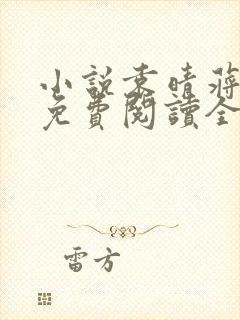 小說袁晴蔣
免費閱讀全
雷方